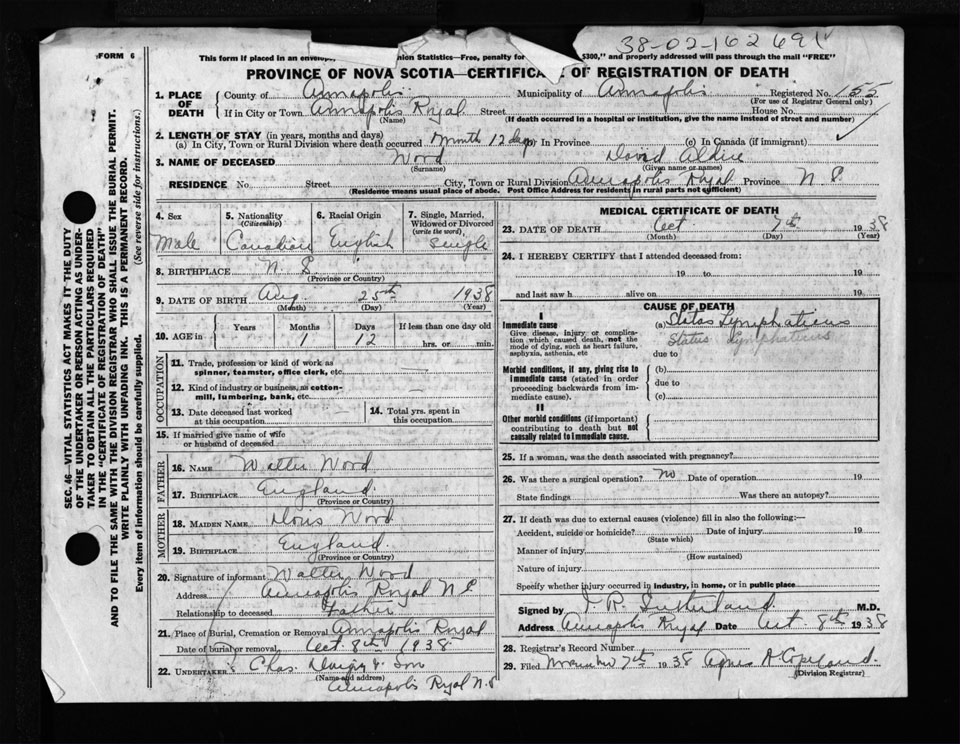 38-02-162691
FORM 6
This form if placed in an envelope, Statistics—Free, penalty for $300," and properly addressed will pass through the mail "FREE"
PROVINCE OF NOVA SCOTIA—CERTIFICATE OF REGISTRATION OF DEATH
1. PLACE OF DEATH County of Annapolis Municipality of Annapolis Registered No. 155
(For use of Registrar General only)
If in City or Town Annapolis Royal Street House No.
(Name) (If death occurred in a hospital or institution, give the name instead of street and number)
2. LENGTH OF STAY (in years, months and days)
(a) In City, Town or Rural Division where death occurred 1 month 12 days (b) In Province (c) In Canada (if immigrant)
3. NAME OF DECEASED Wood David
(Surname) (Given name or names)
RESIDENCE No. Street City, Town or Rural Division Annapolis Royal Province N.S.
(Residence means usual place of abode. Post Office Address for residents in rural parts not sufficient)
4. Sex Male
5. Nationality (Citizenship) Canadian
6. Racial Origin English
7. Single, Married, Widowed or Divorced (write the word) Single
8. BIRTHPLACE N.S.
(Province or Country)
9. DATE OF BIRTH Aug. 25th 1938
(Month) (Day) (Year)
10. AGE in Years Months 1 Days 12 If less than one day old hrs. or min.
OCCUPATION
11. Trade, profession or kind of work as spinner, teamster, office clerk, etc.
12. Kind of industry or business, as cotton-mill, lumbering, bank, etc.
13. Date deceased last worked at this occupation
14. Total yrs. spent in this occupation
15. If married give name of wife or husband of deceased
FATHER
16. NAME Walter Wood
17. BIRTHPLACE England
(Province or Country)
MOTHER
18. MAIDEN NAME Doris Wood
19. BIRTHPLACE England
(Province or Country)
20. Signature of informant Walter Wood
Address Annapolis Royal N.S.
Relationship to deceased Father
21. Place of Burial, Cremation or Removal Annapolis Royal
Date of burial or removal Oct 8th 1938
22. UNDERTAKER Chas. & Son
(Name and address)
Annapolis Royal N.S.
MEDICAL CERTIFICATE OF DEATH
23. DATE OF DEATH Oct. 7th 1938
(Month) (Day) (Year)
24. I HEREBY CERTIFY that I attended deceased from:
19 to 19
and last saw h alive on 19
CAUSE OF DEATH
I
Immediate cause
Give disease, injury or complication which caused death, not the mode of dying, such as heart failure, asphyxia, asthenia, etc
(a) Status Lymphaticus
Status Lymphaticus
due to
Morbid conditions, if any, giving rise to immediate cause (stated in order proceeding backwards from immediate cause).
(b)
due to
(c)
II
Other morbid conditions (if important) contributing to death but not causally related to immediate cause.
25. If a woman, was the death associated with pregnancy?
26. Was there a surgical operation? no Date of operation 19
State findings Was there an autopsy?
27. If death was due to external causes (violence) fill in also the following:—
Accident, suicide or homicide? Date of injury 19
(State which)
Manner of injury
(How sustained)
Nature of injury
Specify whether injury occurred in industry, in home, or in public place
Signed by Sutherland M.D.
Address Annapolis Royal Date Oct 8th 1938
28. Registrar's Record Number
29. Filed November 7th 1938 Agnes A Copeland
(Division Registrar)
SEC. 46—VITAL STATISTICS ACT MAKES IT THE DUTY
OF THE UNDERTAKER OR PERSON ACTING AS UNDER-
TAKER TO OBTAIN ALL THE PARTICULARS REQUIRED
IN THE "CERTIFICATE OF REGISTRATION OF DEATH"
AND TO FILE THE SAME WITH THE DIVISION REGISTRAR WHO SHALL ISSUE THE BURIAL PERMIT.
WRITE PLAINLY WITH UNFADING INK. THIS IS A PERMANENT RECORD.
Every item of information should be carefully supplied. (See reverse side for instructions).